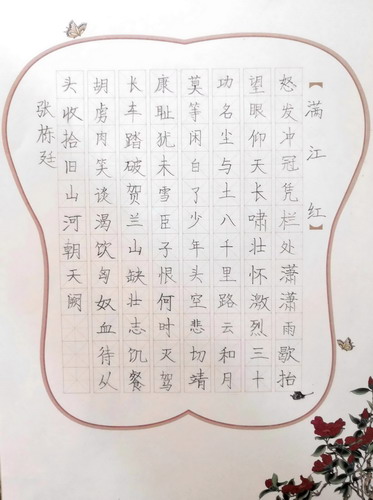 【满江红】
怒发冲冠凭栏处潇潇雨歇抬
望眼仰天长啸壮怀激烈三十
功名尘与土八千里路云和月
莫等闲白了少年头空悲切靖
康耻犹未雪臣子恨何时灭驾
长车踏破贺兰山缺壮志饥餐
胡虏肉笑谈渴饮匈奴血待从
头收拾旧山河朝天阙
张栋廷